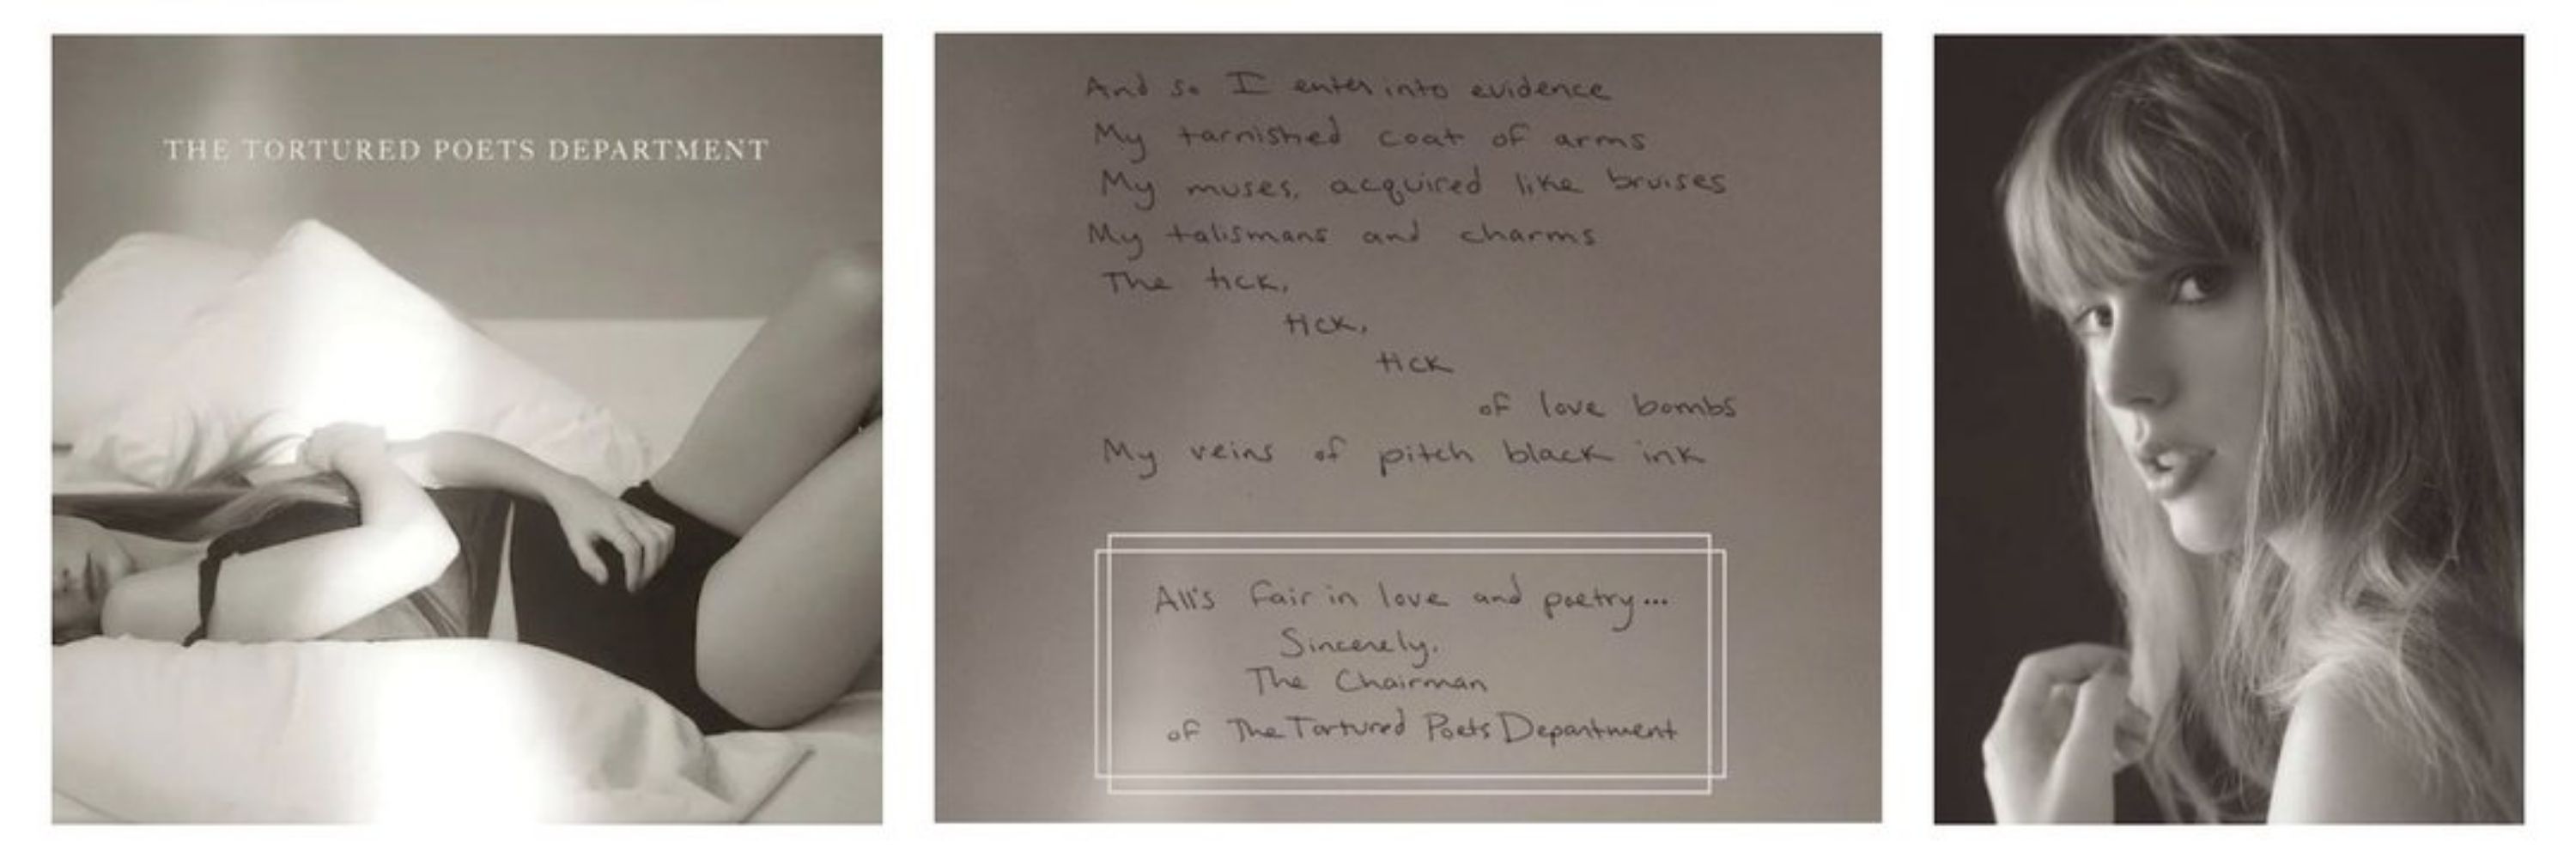 THE TORTURED POETS DEPARTMENT
And so I enter into evidence
My tarnished coat of arms
My muses, acquired like bruises
My talismans and charms
The tick,
tick,
tick
of love bombs
My veins of pitch black ink
All's fair in love and poetry...
Sincerely,
The Chairman
of The Tortured Poets Department